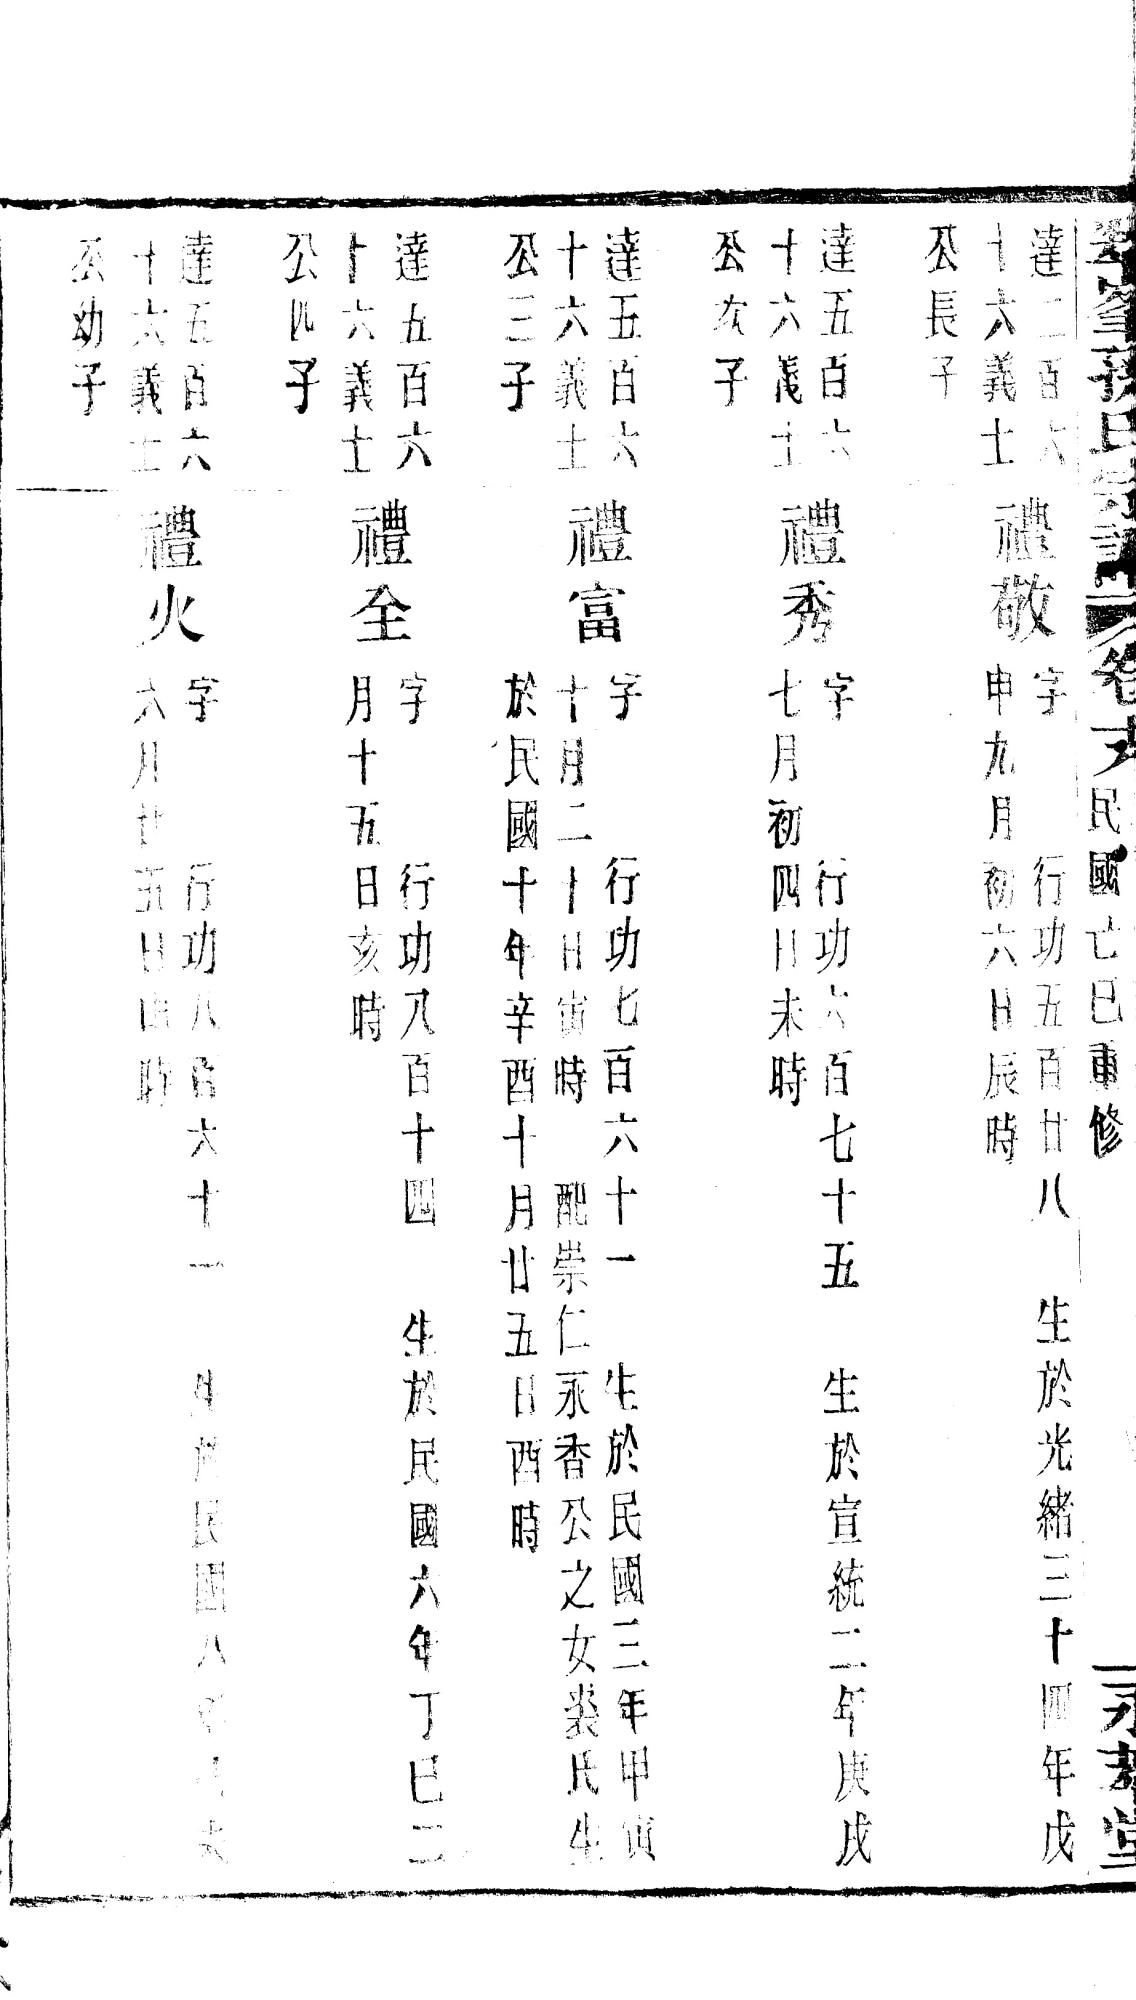 氏宗譜 卷 民國己巳重修
永孝堂
達二百六
十六義士
公長子
禮敬
字 行功五百廿八 生於光緒三十四年戊
申九月初六日辰時
達五百六
十六義士
公次子
禮秀
字 行功六百七十五 生於宣統二年庚戌
七月初四日未時
達五百六
十六義士
公三子
禮富
字 行功七百六十一 生於民國三年甲寅
十月二十日寅時 配崇仁永香公之女裘氏生
於民國十年辛酉十月廿五日酉時
達五百六
十六義士
公四子
禮全
字 行功八百十四 生於民國六年丁巳二
月十五日亥時
達五百六
十六義士
公幼子
禮火
字 行功八百六十一 生於民國八年己未
六月廿五日 時